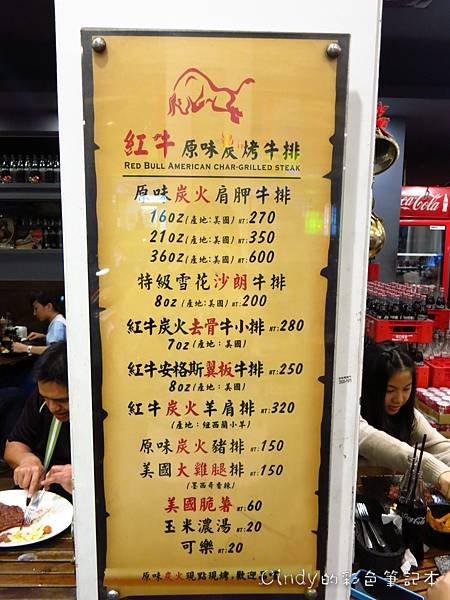 紅牛 原味炭烤牛排
RED BULL AMERICAN CHAR-GRILLED STEAK
原味炭火肩胛牛排
16oz(產地:美國) NT:270
21oz(產地:美國) NT:350
36oz(產地:美國) NT:600
特級雪花沙朗牛排
8oz(產地:美國) NT:200
紅牛炭火去骨牛小排 NT:280
7oz(產地:美國)
紅牛安格斯翼板牛排 NT:250
8oz(產地:美國)
紅牛炭火羊肩排 NT:320
(產地:紐西蘭小羊)
原味炭火豬排 NT:150
美國大雞腿排 NT:150
(墨西哥香辣)
美國脆薯 NT:60
玉米濃湯 NT:20
可樂 NT:20
原味炭火現點現烤,歡迎
Cindy的彩色筆記本
Coca-Cola